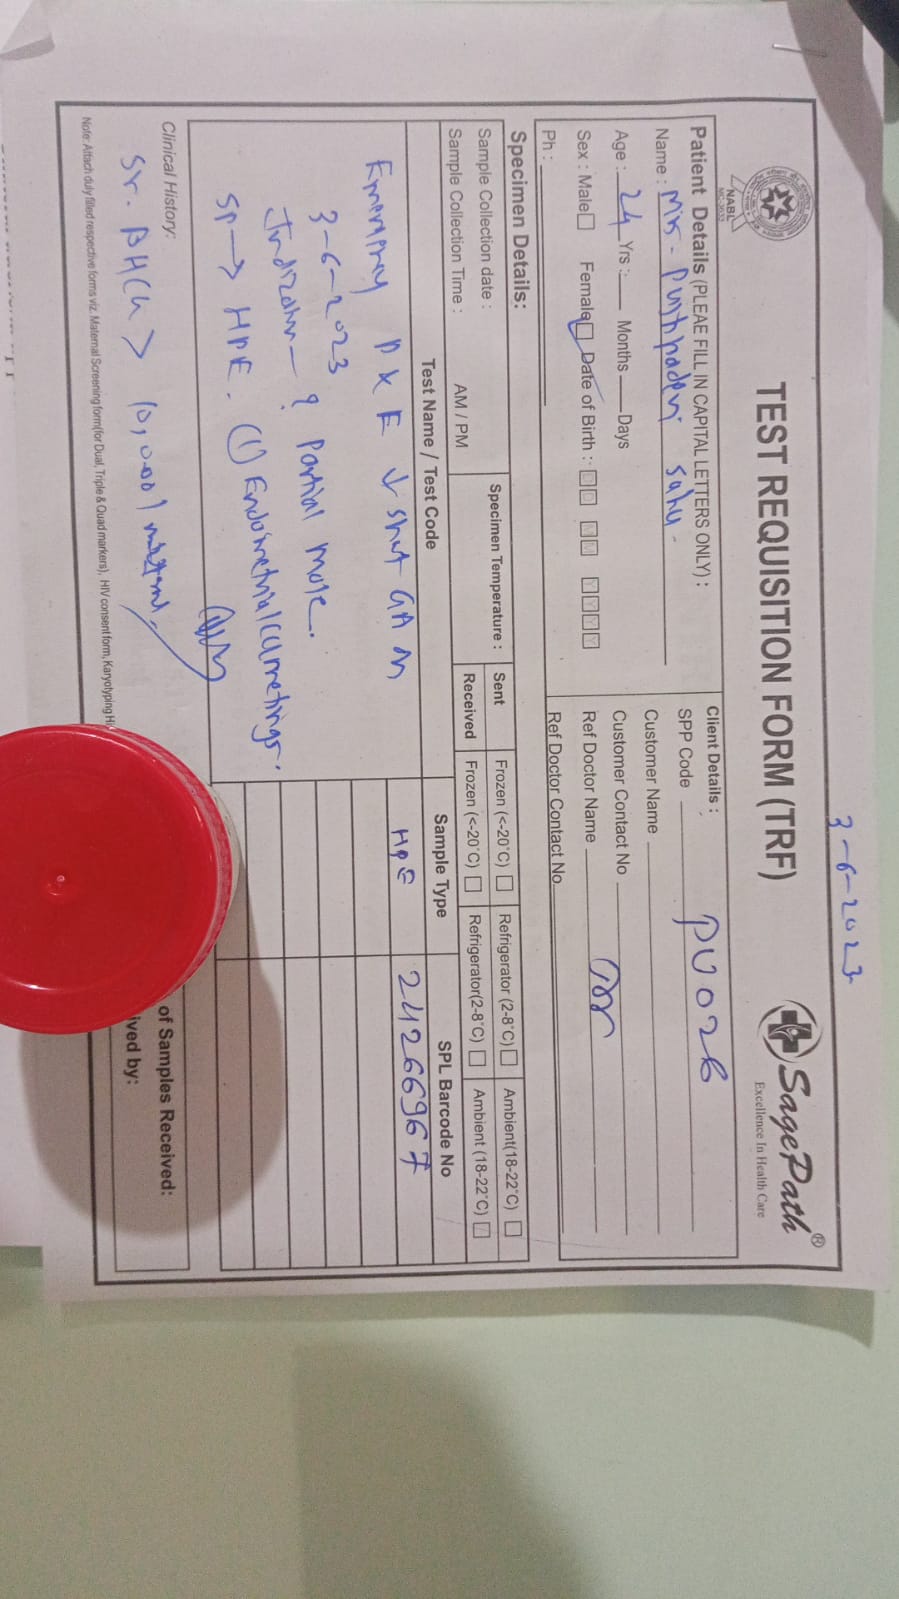 3-6-2023
NABL
MC-3633
TEST REQUISITION FORM (TRF)
SagePath®
Excellence In Health Care
Patient Details (PLEAE FILL IN CAPITAL LETTERS ONLY) :
Name : Mrs - Pushpadevi Sahu -
Age : 24 Yrs :- Months Days
Sex : Male Female Date of Birth : D D M M Y Y Y Y
Ph :
Client Details :
SPP Code PU026
Customer Name
Customer Contact No
Ref Doctor Name
Ref Doctor Contact No
Specimen Details:
Sample Collection date :
Sample Collection Time : AM / PM
Specimen Temperature :
Sent Frozen (<-20°C) Refrigerator (2-8°C) Ambient(18-22°C)
Received Frozen (<-20°C) Refrigerator(2-8°C) Ambient (18-22°C)
Test Name / Test Code Sample Type SPL Barcode No
Emergency D & E ↓ short GA on HPE 24266967
3-6-2023
Indication - ? Partial mole.
SP → HPE. (1) Endometrial curettings.
Clinical History:
Sr. BHCG > 10,000
of Samples Received:
ived by:
Note: Attach duly filled respective forms viz. Maternal Screening form(for Dual, Triple & Quad markers), HIV consent form, Karyotyping